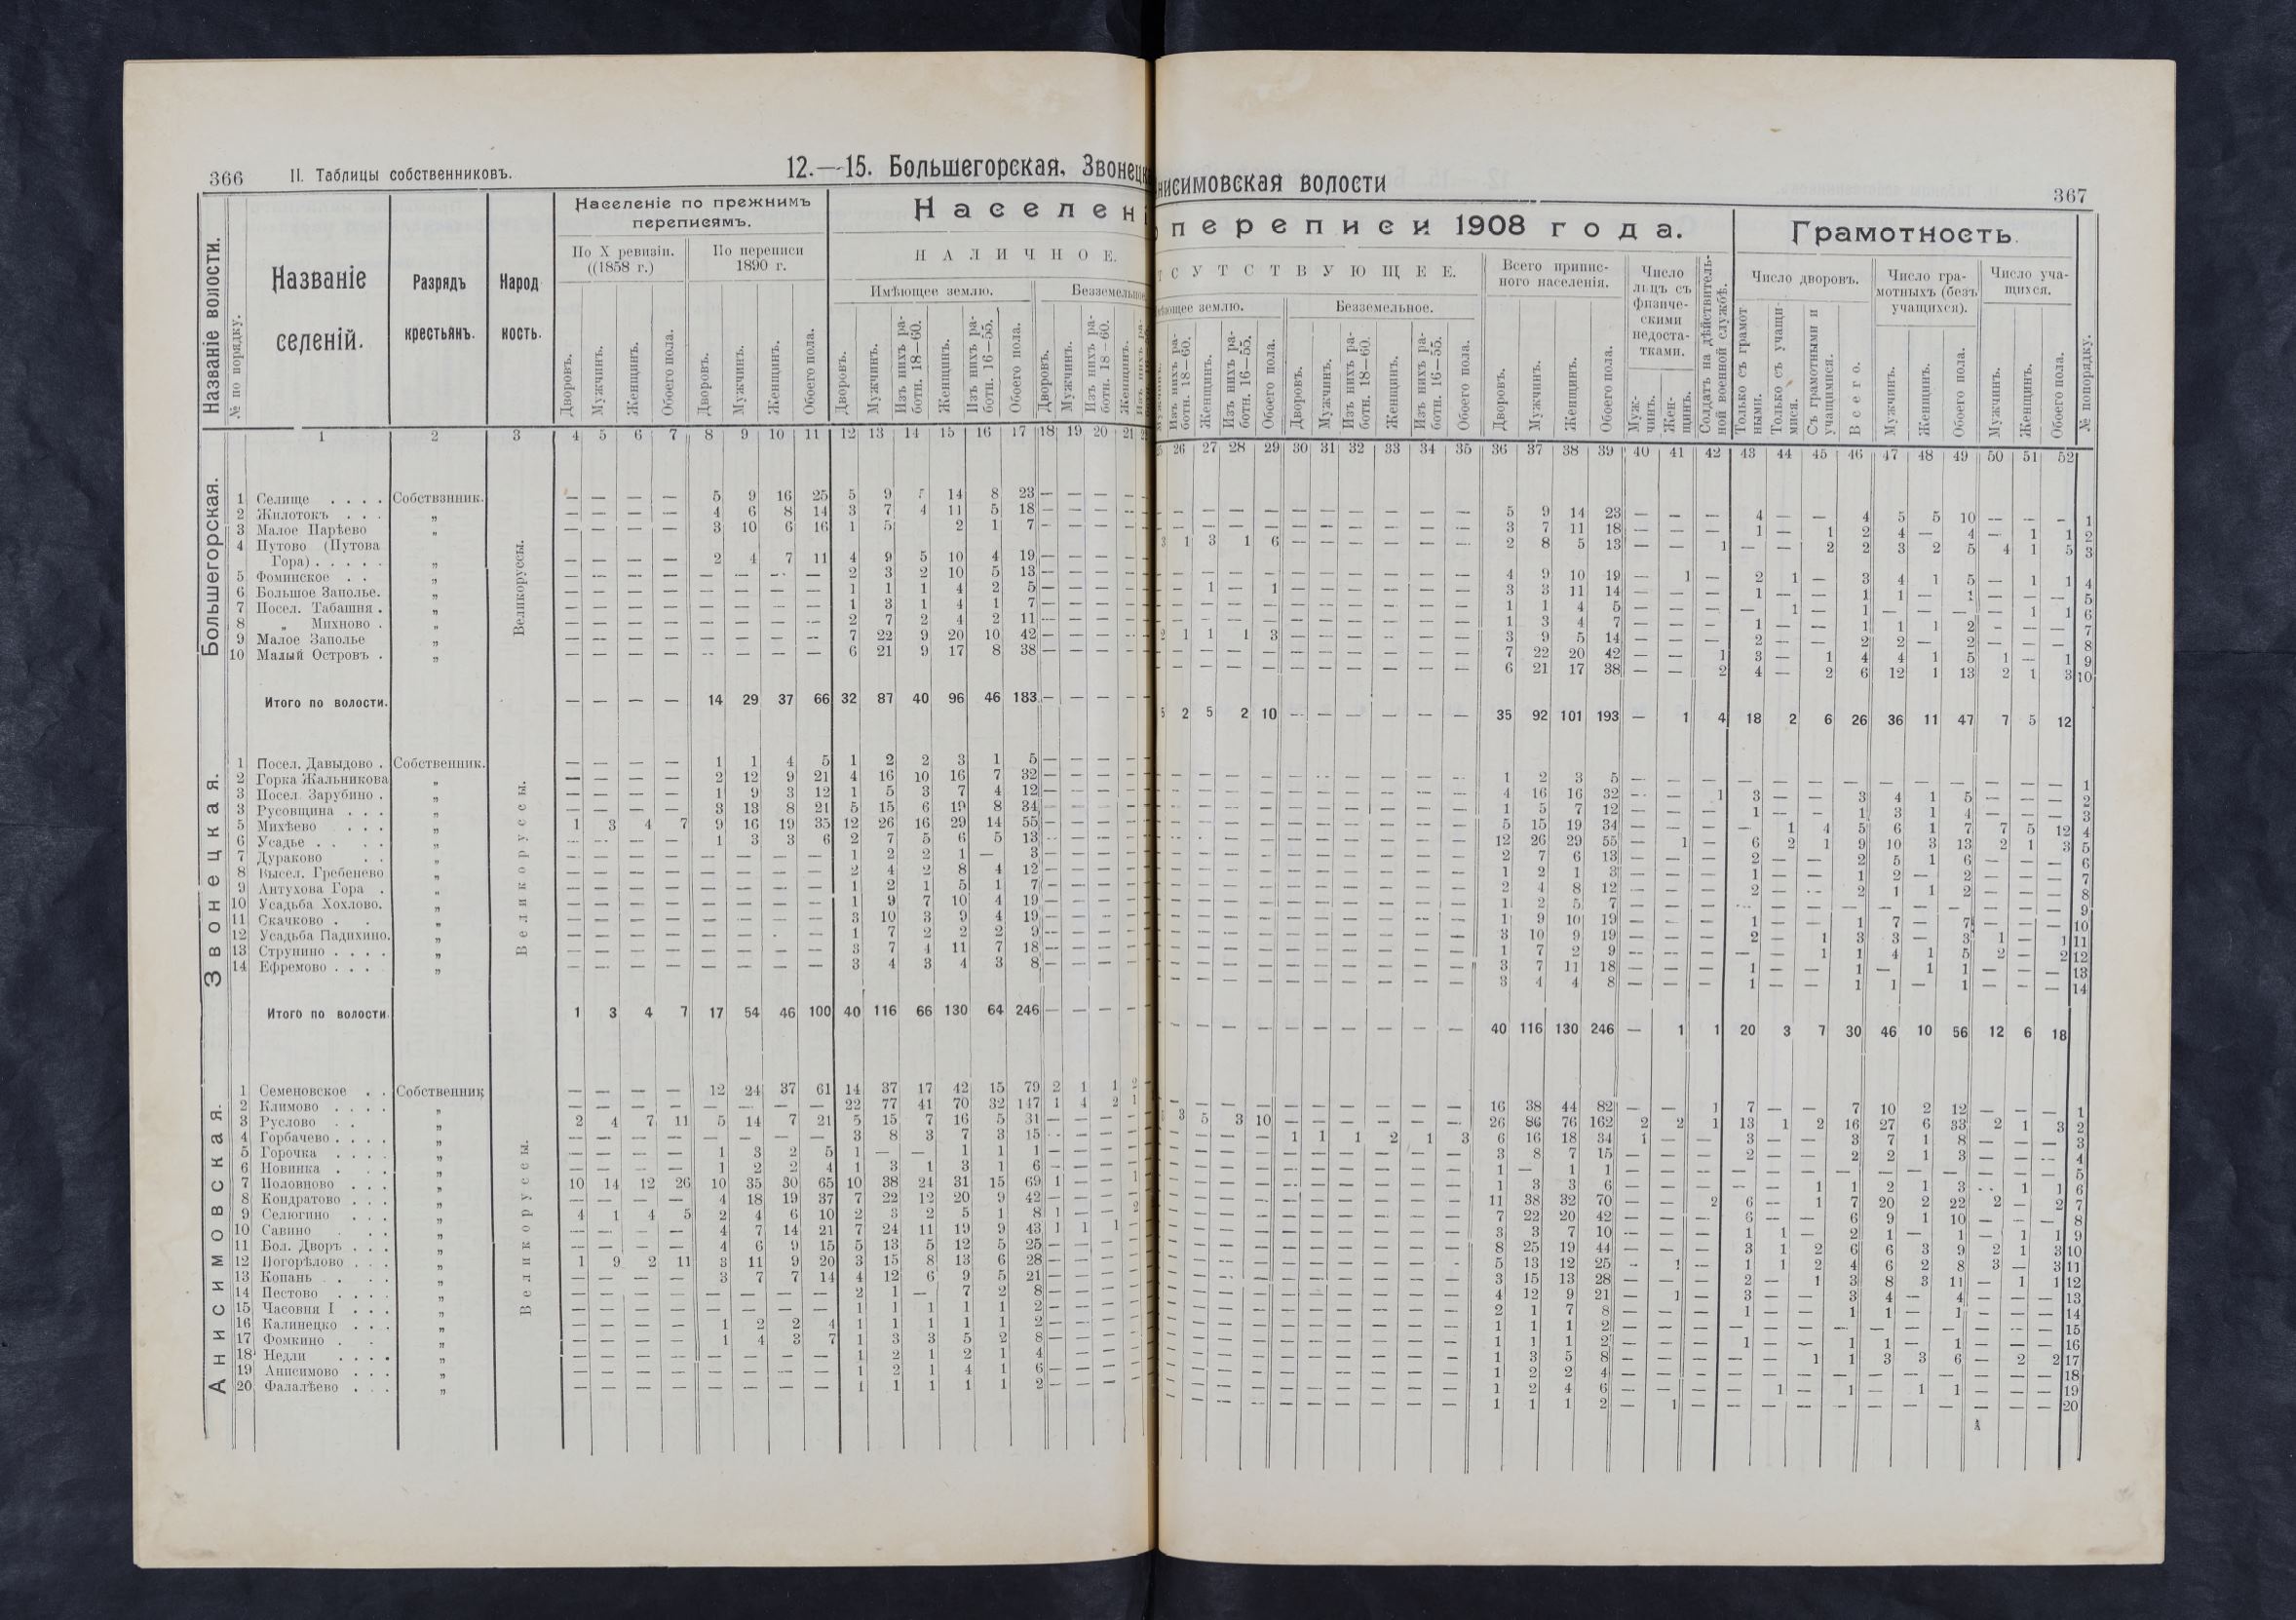 366 II. Таблицы собственниковъ. 12.—15. Большегорская, Звонецк
нисимовская волости 367
Название волости.
№ по порядку.
Названіе селеній.
Разрядъ крестьянъ.
Народ ность.
Населеніе по прежнимъ переписямъ.
По X ревизіи. ((1858 г.)
По переписи 1890 г.
Населен
НАЛИЧНОЕ.
Имѣющее землю.
Безземельное
переписи 1908 года.
СУТСТВУЮЩЕЕ.
ющее землю.
Безземельное.
Всего приписного населенія.
Число лицъ съ физическими недостатками.
Солдатъ на дѣйствительной военной службѣ.
Грамотность.
Число дворовъ.
Число грамотныхъ (безъ учащихся).
Число учащихся.
№ попорядку.
Дворовъ. Мужчинъ. Женщинъ. Обоего пола. Дворовъ. Мужчинъ. Женщинъ. Обоего пола. Дворовъ. Мужчинъ. Изъ нихъ работн. 18—60. Женщинъ. Изъ нихъ работн. 16—55. Обоего пола. Дворовъ. Мужчинъ. Изъ нихъ работн. 18—60. Женщинъ.
Изъ нихъ работн. 18—60. Женщинъ. Изъ нихъ работн. 16—55. Обоего пола. Дворовъ. Мужчинъ. Изъ нихъ работн. 18—60. Женщинъ. Изъ нихъ работн. 16—55. Обоего пола. Дворовъ. Мужчинъ. Женщинъ. Обоего пола. Мужчинъ. Женщинъ. Только съ грамотными. Только съ учащимися. Съ грамотными и учащимися. Всего. Мужчинъ. Женщинъ. Обоего пола. Мужчинъ. Женщинъ. Обоего пола.
1 2 3 4 5 6 7 8 9 10 11 12 13 14 15 16 17 18 19 20 21
26 27 28 29 30 31 32 33 34 35 36 37 38 39 40 41 42 43 44 45 46 47 48 49 50 51 52
Большегорская.
Великоруссы.
1 Селище . . . . Собственник. — — — — 5 9 16 25 5 9 14 8 23 — — — —
2 Жилотокъ . . . „ — — — — 4 6 8 14 3 7 4 11 5 18 — — — —
3 Малое Парѣево „ — — — — 3 10 6 16 1 5 2 1 7 — — — —
4 Путово (Путова
Гора) . . . . . „ — — — — 2 4 7 11 4 9 5 10 4 19 — — — —
5 Фоминское . . „ — — — — — — — — 2 3 2 10 5 13 — — — —
6 Большое Заполье. „ — — — — — — — — 1 1 1 4 2 5 — — — —
7 Посел. Табашня . „ — — — — — — — — 1 3 1 4 1 7 — — — —
8 „ Михново . „ — — — — — — — — 2 7 2 4 2 11 — — — —
9 Малое Заполье „ — — — — — — — — 7 22 9 20 10 42 — — — —
10 Малый Островъ . „ — — — — — — — — 6 21 9 17 8 38 — — — —
Итого по волости. — — — — 14 29 37 66 32 87 40 96 46 183 — — — —
— — — — — — — — — — 5 9 14 23 — — — 4 — — 4 5 5 10 — — — 1
— — — — — — — — — — 3 7 11 18 — — — 1 — 1 2 4 — 4 — 1 1 2
3 1 3 1 6 — — — — — — 2 8 5 13 — — 1 — — 2 2 3 2 5 4 1 5 3
— — — — — — — — — — 4 9 10 19 — 1 — 2 1 — 3 4 1 5 — 1 1 4
— 1 — 1 — — — — — — 3 3 11 14 — — — 1 — — 1 1 — 1 — — — 5
— — — — — — — — — — 1 1 4 5 — — — — 1 — 1 — — — — 1 1 6
— — — — — — — — — — 1 3 4 7 — — — 1 — — 1 1 1 2 — — — 7
2 1 1 1 3 — — — — — — 3 9 5 14 — — — 2 — — 2 2 — 2 — — — 8
— — — — — — — — — — 7 22 20 42 — — 1 3 — 1 4 4 1 5 1 — 1 9
— — — — — — — — — — 6 21 17 38 — — 2 4 — 2 6 12 1 13 2 1 3 10
5 2 5 2 10 — — — — — — 35 92 101 193 — 1 4 18 2 6 26 36 11 47 7 5 12
Звонецкая.
Великоруссы.
1 Посел. Давыдово . Собственник. — — — — 1 1 4 5 1 2 2 3 1 5 — — — —
2 Горка Жальникова „ — — — — 2 12 9 21 4 16 10 16 7 32 — — — —
3 Посел. Зарубино . „ — — — — 1 9 3 12 1 5 3 7 4 12 — — — —
3 Русовщина . . . „ — — — — 3 13 8 21 5 15 6 19 8 34 — — — —
5 Михѣево . . . „ 1 3 4 7 9 16 19 35 12 26 16 29 14 55 — — — —
6 Усадье . . . . „ — — — — 1 3 3 6 2 7 5 6 5 13 — — — —
7 Дураково . . „ — — — — — — — — 1 2 2 1 — 3 — — — —
8 Высел. Гребенево „ — — — — — — — — 2 4 2 8 4 12 — — — —
9 Антухова Гора . „ — — — — — — — — 1 2 1 5 1 7 — — — —
10 Усадьба Хохлово. „ — — — — — — — — 1 9 7 10 4 19 — — — —
11 Скачково . . „ — — — — — — — — 3 10 3 9 4 19 — — — —
12 Усадьба Падихино. „ — — — — — — — — 1 7 2 2 2 9 — — — —
13 Струнино . . . . „ — — — — — — — — 3 7 4 11 7 18 — — — —
14 Ефремово . . . „ — — — — — — — — 3 4 3 4 3 8 — — — —
Итого по волости. 1 3 4 7 17 54 46 100 40 116 66 130 64 246 — — — —
— — — — — — — — — — 1 2 3 5 — — — — — — — — — — — — — 1
— — — — — — — — — — 4 16 16 32 — — 1 3 — — 3 4 1 5 — — — 2
— — — — — — — — — — 1 5 7 12 — — — 1 — — 1 3 1 4 — — — 3
— — — — — — — — — — 5 15 19 34 — — — — 1 4 5 6 1 7 7 5 12 4
— — — — — — — — — — 12 26 29 55 — 1 — 6 2 1 9 10 3 13 2 1 3 5
— — — — — — — — — — 2 7 6 13 — — — 2 — — 2 5 1 6 — — — 6
— — — — — — — — — — 1 2 1 3 — — — 1 — — 1 2 — 2 — — — 7
— — — — — — — — — — 2 4 8 12 — — — 2 — — 2 1 1 2 — — — 8
— — — — — — — — — — 1 2 5 7 — — — — — — — — — — — — — 9
— — — — — — — — — — 1 9 10 19 — — — 1 — — 1 7 — 7 — — — 10
— — — — — — — — — — 3 10 9 19 — — — 2 — 1 3 3 — 3 1 — 1 11
— — — — — — — — — — 1 7 2 9 — — — — — 1 1 4 1 5 2 — 2 12
— — — — — — — — — — 3 7 11 18 — — — 1 — — 1 — 1 1 — — — 13
— — — — — — — — — — 3 4 4 8 — — — 1 — — 1 1 — 1 — — — 14
— — — — — — — — — — 40 116 130 246 — 1 1 20 3 7 30 46 10 56 12 6 18
Анисимовская.
Великоруссы.
1 Семеновское . . Собственник — — — — 12 24 37 61 14 37 17 42 15 79 2 1 1 2
2 Климово . . . . „ — — — — — — — — 22 77 41 70 32 147 1 4 2 1
3 Руслово . . „ 2 4 7 11 5 14 7 21 5 15 7 16 5 31 — — — —
4 Горбачево . . . . „ — — — — — — — — 3 8 3 7 3 15 — — — —
5 Горочка . . . . „ — — — — 1 3 2 5 1 — — 1 1 1 — — — —
6 Новинка . . . „ — — — — 1 2 2 4 1 3 1 3 1 6 — — — —
7 Половново . . . „ 10 14 12 26 10 35 30 65 10 38 24 31 15 69 1 — — 1
8 Кондратово . . . „ — — — — 4 18 19 37 7 22 12 20 9 42 — — — —
9 Селюгино . . . „ 4 1 4 5 2 4 6 10 2 3 2 5 1 8 1 — — 2
10 Савино . . . „ — — — — 4 7 14 21 7 24 11 19 9 43 1 1 1 —
11 Бол. Дворъ . . . „ — — — — 4 6 9 15 5 13 5 12 5 25 — — — —
12 Погорѣлово . . . „ 1 9 2 11 3 11 9 20 3 15 8 13 6 28 — — — —
13 Копань . . . „ — — — — 3 7 7 14 4 12 6 9 5 21 — — — —
14 Пестово . . . . „ — — — — — — — — 2 1 — 7 2 8 — — — —
15 Часовня I . . . „ — — — — — — — — 1 1 1 1 1 2 — — — —
16 Калинецко . . . „ — — — — 1 2 2 4 1 1 1 1 1 2 — — — —
17 Фомкино . . . „ — — — — 1 4 3 7 1 3 3 5 2 8 — — — —
18 Недли . . . . „ — — — — — — — — 1 2 1 2 1 4 — — — —
19 Анисимово . . . „ — — — — — — — — 1 2 1 4 1 6 — — — —
20 Фалалѣево . . . „ — — — — — — — — 1 1 1 1 1 2 — — — —
— — — — — — — — — — 16 38 44 82 — — 1 7 — — 7 10 2 12 — — — 1
3 5 3 10 — — — — — — 26 86 76 162 2 2 1 13 1 2 16 27 6 33 2 1 3 2
— — — — 1 1 1 2 1 3 6 16 18 34 1 — — 3 — — 3 7 1 8 — — — 3
— — — — — — — — — — 3 8 7 15 — — — 2 — — 2 2 1 3 — — — 4
— — — — — — — — — — 1 — 1 1 — — — — — — — — — — — — — 5
— — — — — — — — — — 1 3 3 6 — — — — — 1 1 2 1 3 — 1 1 6
— — — — — — — — — — 11 38 32 70 — — 2 6 — 1 7 20 2 22 2 — 2 7
— — — — — — — — — — 7 22 20 42 — — — 6 — — 6 9 1 10 — — — 8
— — — — — — — — — — 3 3 7 10 — — — 1 1 — 2 1 — 1 — 1 1 9
— — — — — — — — — — 8 25 19 44 — — — 3 1 2 6 6 3 9 2 1 3 10
— — — — — — — — — — 5 13 12 25 — 1 — 1 1 2 4 6 2 8 3 — 3 11
— — — — — — — — — — 3 15 13 28 — — — 2 — 1 3 8 3 11 — 1 1 12
— — — — — — — — — — 4 12 9 21 — 1 — 3 — — 3 4 — 4 — — — 13
— — — — — — — — — — 2 1 7 8 — — — 1 — — 1 1 — 1 — — — 14
— — — — — — — — — — 1 1 1 2 — — — — — — — — — — — — — 15
— — — — — — — — — — 1 1 1 2 — — — 1 — — 1 1 — 1 — — — 16
— — — — — — — — — — 1 3 5 8 — — — — — 1 1 3 3 6 — 2 2 17
— — — — — — — — — — 1 2 2 4 — — — — — — — — — — — — — 18
— — — — — — — — — — 1 2 4 6 — — — — 1 — 1 — 1 1 — — — 19
— — — — — — — — — — 1 1 1 2 — 1 — — — — — — — — — — — 20